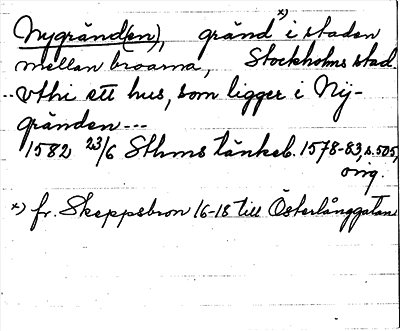 Nygränd(en), gränd *) i staden
mellan broarna, Stockholms stad.
.. vthi ett hus, som ligger i Nij-
gränden ---
1582 23/6 Sthms tänkeb. 1578-83, s. 505,
orig.
*) fr. Skeppsbron 16-18 till Österlånggatan